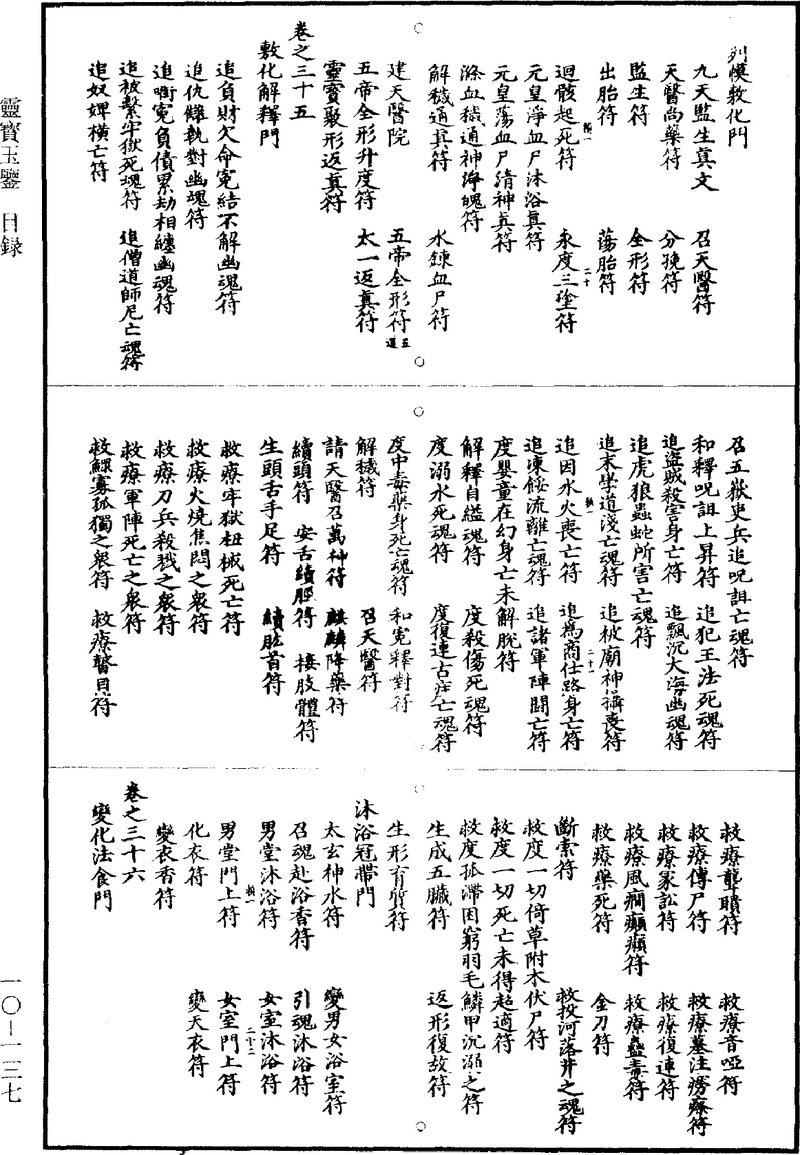 靈寶玉鑒 目録
一〇—一三七
列慔敎化門
九天監生真文 召天醫符
天醫尚藥符 分㝃符
監生符 全形符
出胎符 蕩胎符
迴骸起死符 永度三塗符
元皇淨血尸沐浴真符
元皇蕩血尸清神真符
滌血穢通神淨魄符
解穢通真符 水鍊血尸符
建天醫院 五帝全形符五道
五帝全形升度符 太一返真符
靈寶聚形返真符
卷之三十五
敷化解釋門
追負財欠命寃結不解幽魂符
追仇讎執對幽魂符
追啣寃負債累劫相纏幽魂符
追被繫牢獄死魂符 追僧道師尼亡魂符
追奴婢橫亡符
召五嶽吏兵追呪詛亡魂符
和釋呪詛上昇符 追犯王法死魂符
追盜賊殺害身亡符 追飄沉大海幽魂符
追虎狼蟲蛇所害亡魂符
追末學道淺亡魂符 追被廟神攝喪符
追因水火喪亡符 追爲商仕路身亡符
追凍餒流離亡魂符 追諸軍陣鬪亡符
度嬰童在幻身亡未解脫符
解釋自縊魂符 度殺傷死魂符
度溺水死魂符 度復連古疰亡魂符
度中毒藥身死亡魂符 和寃釋對符
解穢符 召天醫符
請天醫召萬神符 麒麟降藥符
續頭符 安舌續脛符 接肢體符
生頭舌手足符 續脛首符
救療牢獄杻械死亡符
救療火燒焦悶之衆符
救療刀兵殺戮之衆符
救療軍陣死亡之衆符
救鰥寡孤獨之衆符 救療瞽目符
救療聾聵符 救療音啞符
救療傳尸符 救療墓注癆瘵符
救療冢訟符 救療復連符
救療風癇癲癩符 救療蠱毒符
救療藥死符 金刀符
斷索符 救投河落井之魂符
救度一切倚草附木伏尸符
救度一切死亡未得超適符
救度孤滯困窮羽毛鱗甲沉溺之符
生成五臟符 返形復故符
生形育質符
沐浴冠帶門
太玄神水符 變男女浴室符
召魂赴浴香符 引魂沐浴符
男堂沐浴符 女室沐浴符
男堂門上符 女室門上符
化衣符 變天衣符
變衣香符
卷之三十六
變化法食門